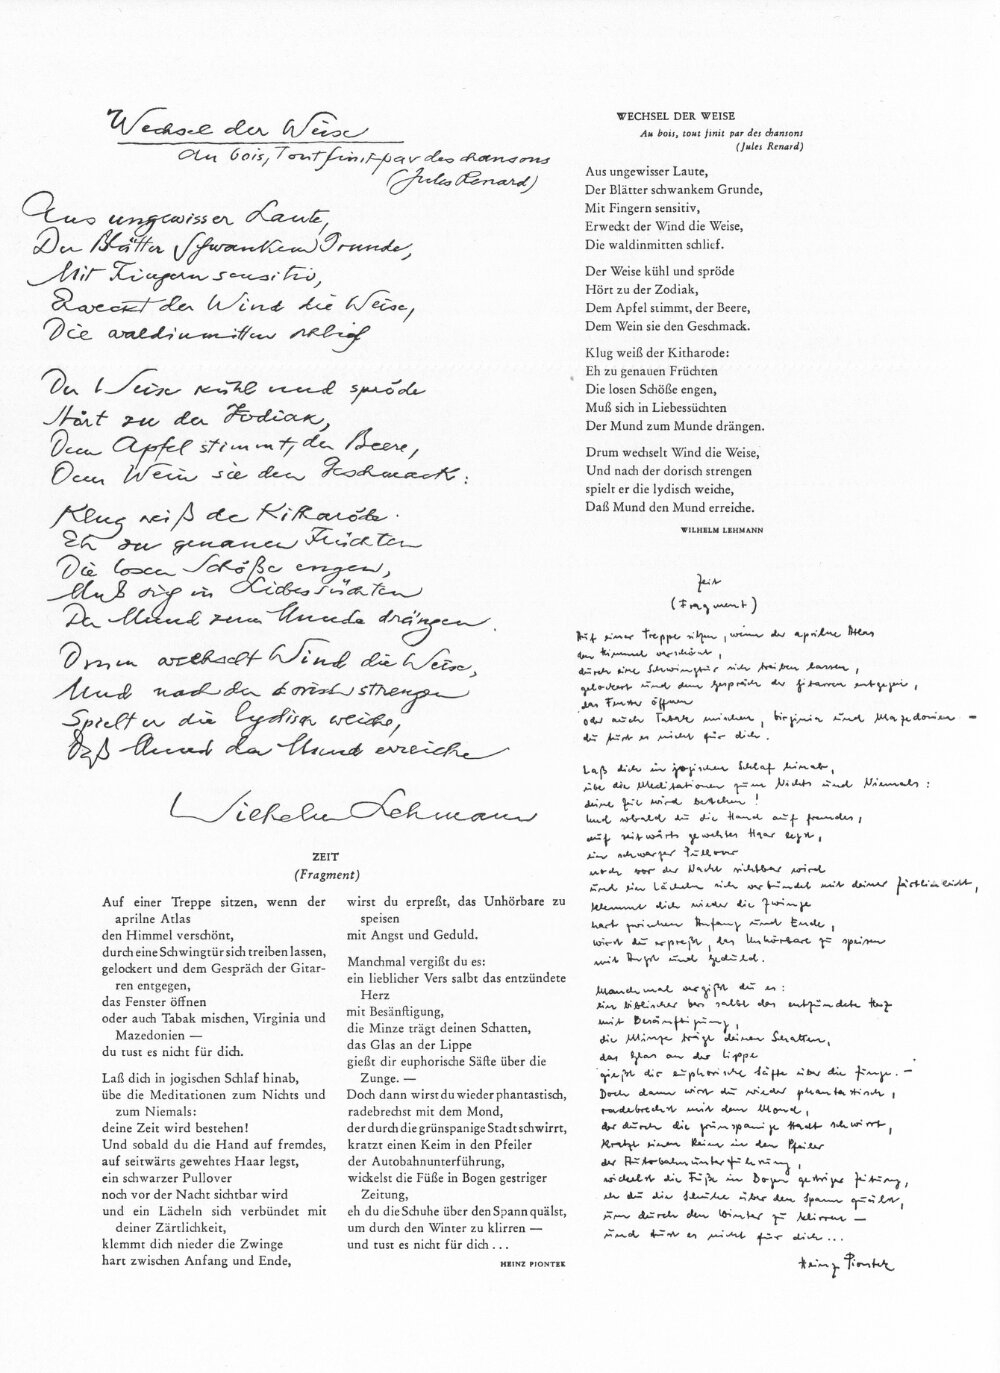 Wechsel der Weise
Au bois, tout finit par des chansons
(Jules Renard)
Aus ungewisser Laute,
Der Blätter schwankem Grunde,
Mit Fingern sensitiv,
Erweckt der Wind die Weise,
Die waldinmitten schlief
Der Weise kühl und spröde
Hört zu der Zodiak,
Dem Apfel stimmt, der Beere,
Dem Wein sie den Geschmack:
Klug weiß der Kitharöde.
Eh zu genauen Früchten
Die losen Schöße engen,
Muß sich in Liebessüchten
Der Mund zum Munde drängen.
Drum wechselt Wind die Weise,
Und nach der dorisch strengen
Spielt er die lydisch weiche,
Daß Mund den Mund erreiche
Wilhelm Lehmann
WECHSEL DER WEISE
Au bois, tout finit par des chansons
(Jules Renard)
Aus ungewisser Laute,
Der Blätter schwankem Grunde,
Mit Fingern sensitiv,
Erweckt der Wind die Weise,
Die waldinmitten schlief.
Der Weise kühl und spröde
Hört zu der Zodiak,
Dem Apfel stimmt, der Beere,
Dem Wein sie den Geschmack.
Klug weiß der Kitharode:
Eh zu genauen Früchten
Die losen Schöße engen,
Muß sich in Liebessüchten
Der Mund zum Munde drängen.
Drum wechselt Wind die Weise,
Und nach der dorisch strengen
spielt er die lydisch weiche,
Daß Mund den Mund erreiche.
WILHELM LEHMANN
ZEIT
(Fragment)
Auf einer Treppe sitzen, wenn der
aprilne Atlas
den Himmel verschönt,
durch eine Schwingtür sich treiben lassen,
gelockert und dem Gespräch der Gitar-
ren entgegen,
das Fenster öffnen
oder auch Tabak mischen, Virginia und
Mazedonien —
du tust es nicht für dich.
Laß dich in jogischen Schlaf hinab,
übe die Meditationen zum Nichts und
zum Niemals:
deine Zeit wird bestehen!
Und sobald du die Hand auf fremdes,
auf seitwärts gewehtes Haar legst,
ein schwarzer Pullover
noch vor der Nacht sichtbar wird
und ein Lächeln sich verbündet mit
deiner Zärtlichkeit,
klemmt dich nieder die Zwinge
hart zwischen Anfang und Ende,
wirst du erpreßt, das Unhörbare zu
speisen
mit Angst und Geduld.
Manchmal vergißt du es:
ein lieblicher Vers salbt das entzündete
Herz
mit Besänftigung,
die Minze trägt deinen Schatten,
das Glas an der Lippe
gießt dir euphorische Säfte über die
Zunge. —
Doch dann wirst du wieder phantastisch,
radebrechst mit dem Mond,
der durch die grünspanige Stadt schwirrt,
kratzt einen Keim in den Pfeiler
der Autobahnunterführung,
wickelst die Füße in Bogen gestriger
Zeitung,
eh du die Schuhe über den Spann quälst,
um durch den Winter zu klirren —
und tust es nicht für dich ...
HEINZ PIONTEK
Zeit
(Fragment)
Auf einer Treppe sitzen, wenn der aprilne Atlas
den Himmel verschönt,
durch eine Schwingtür sich treiben lassen,
gelockert und dem Gespräch der Gitarren entgegen,
das Fenster öffnen
oder auch Tabak mischen, Virginia und Mazedonien —
du tust es nicht für dich.
Laß dich in jogischen Schlaf hinab,
übe die Meditationen zum Nichts und Niemals:
deine Zeit wird bestehen!
Und sobald du die Hand auf fremdes,
auf seitwärts gewehtes Haar legst,
ein schwarzer Pullover
noch vor der Nacht sichtbar wird
und ein Lächeln sich verbündet mit deiner Zärtlichkeit,
klemmt dich nieder die Zwinge
hart zwischen Anfang und Ende,
wirst du erpreßt, das Unhörbare zu speisen
mit Angst und Geduld.
Manchmal vergißt du es:
ein biblischer Vers salbt das entzündete Herz
mit Besänftigung,
die Minze trägt deinen Schatten,
das Glas an der Lippe
gießt dir euphorische Säfte über die Zunge. —
Doch dann wirst du wieder phantastisch,
radebrechst mit dem Mond,
der durch die grünspanige Stadt schwirrt,
kratzt einen Keim in den Pfeiler
der Autobahnunterführung,
wickelst die Füße in Bogen gestriger Zeitung,
eh du die Schuhe über den Spann quälst,
um durch den Winter zu klirren —
und tust es nicht für dich ...
Heinz Piontek